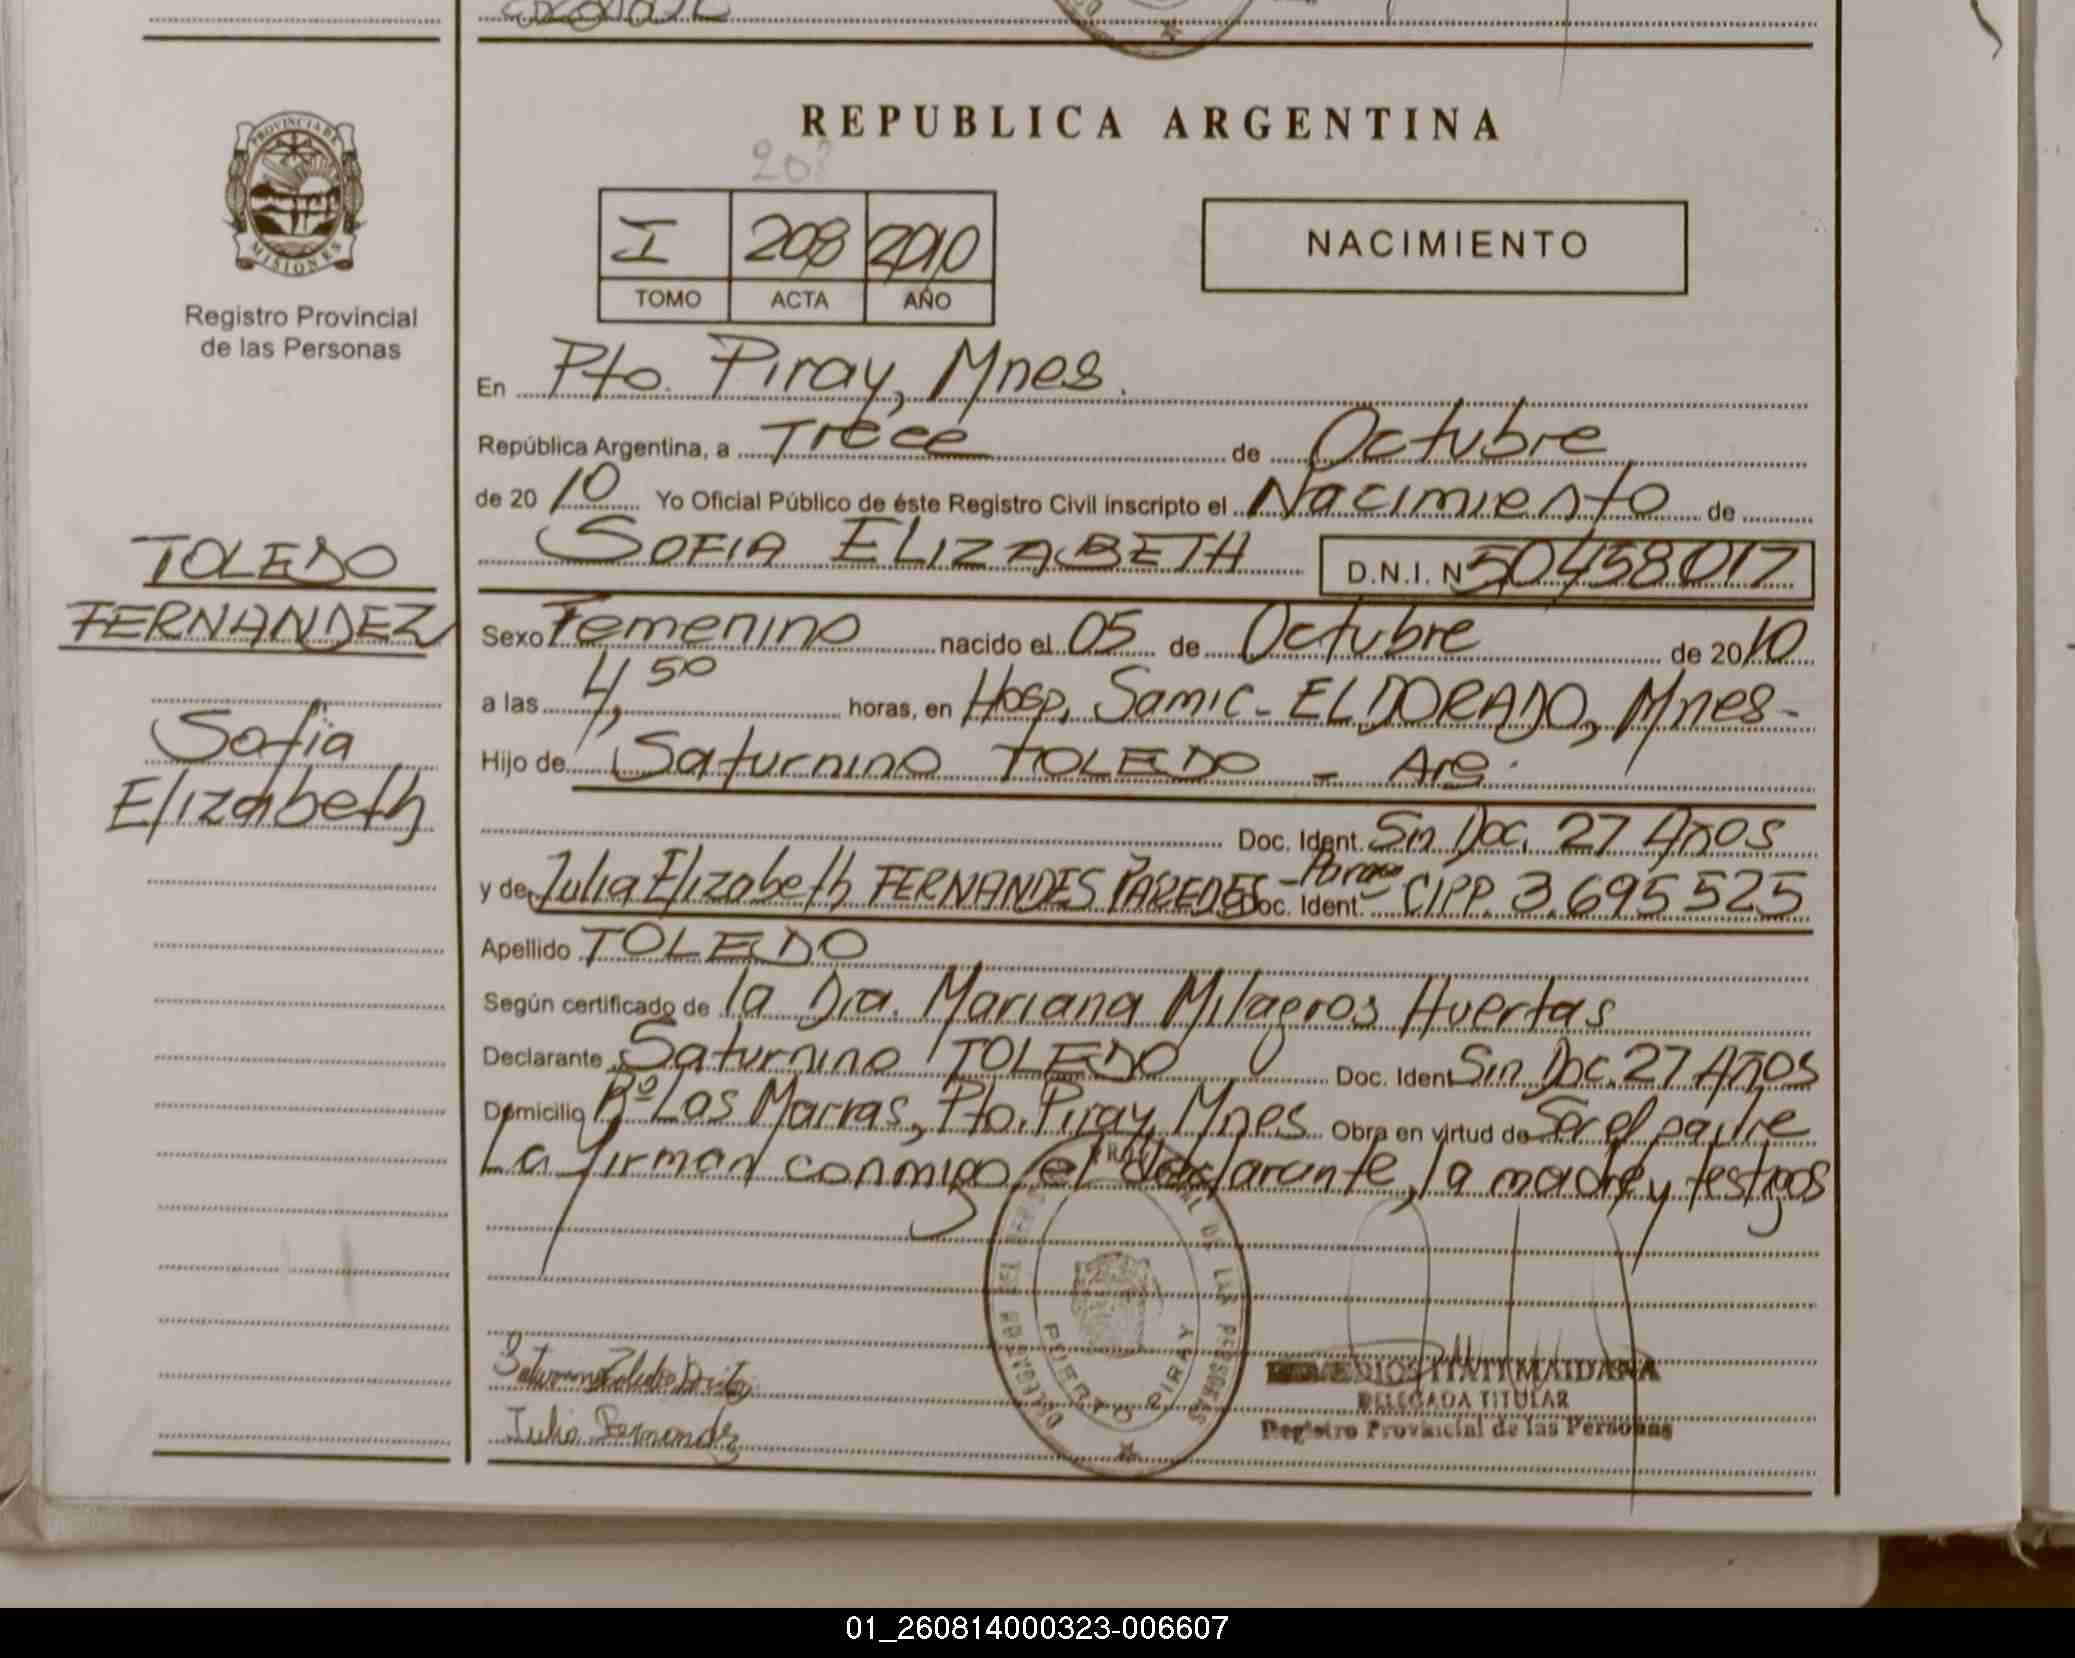 REPUBLICA ARGENTINA
208
PROVINCIA DE
MISIONES
Registro Provincial
de las Personas
I 208 2010
TOMO ACTA AÑO
NACIMIENTO
En Pto. Piray, Mnes.
República Argentina, a Trece de Octubre
de 2010 Yo Oficial Público de éste Registro Civil inscripto el Nacimiento de
SOFIA ELIZABETH D.N.I. N 50458017
TOLEDO
FERNANDEZ
Sofia
Elizabeth
Sexo Femenino nacido el 05 de Octubre de 2010
a las 4,50 horas, en Hosp. Samic - ELDORADO, Mnes-
Hijo de Saturnino TOLEDO - Arg.
Doc. Ident. Sin Doc. 27 Años
y de Julia Elizabeth FERNANDES PAREDES - Doc. Ident. CIPP. 3.695525
Apellido TOLEDO
Según certificado de la Dra. Mariana Milagros Huertas
Declarante Saturnino TOLEDO Doc. Ident Sin Doc. 27 Años
Domicilio Bº Las Marras, Pto. Piray, Mnes Obra en virtud de Ser el padre
La firman conmigo, el declarante, la madre y testigos
DELEGACION DEL REGISTRO PROVINCIAL DE LAS PERSONAS
PUERTO PIRAY
Saturnino Toledo
Julia Fernandez
REMEDIOS ITATI MAIDANA
DELEGADA TITULAR
Registro Provincial de las Personas
01_260814000323-006607